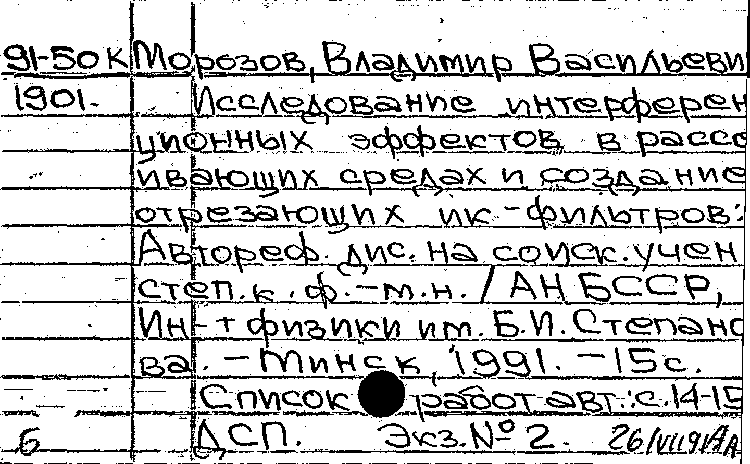 91-50К Морозов, Владимир Васильеви
1901. Исследование интерферен
ционных эффектов в рассе
ивающих средах и создание
отрезающих ик-фильтров:
Автореф. дис. на соиск. учен
степ. к. ф.-м.н. / АН БССР,
Ин-т физики им. Б.И. Степано
ва. - Минск, 1991. - 15с.
Список работ авт.: с.14-15
б ДСП. Экз. № 2. 26/VII91